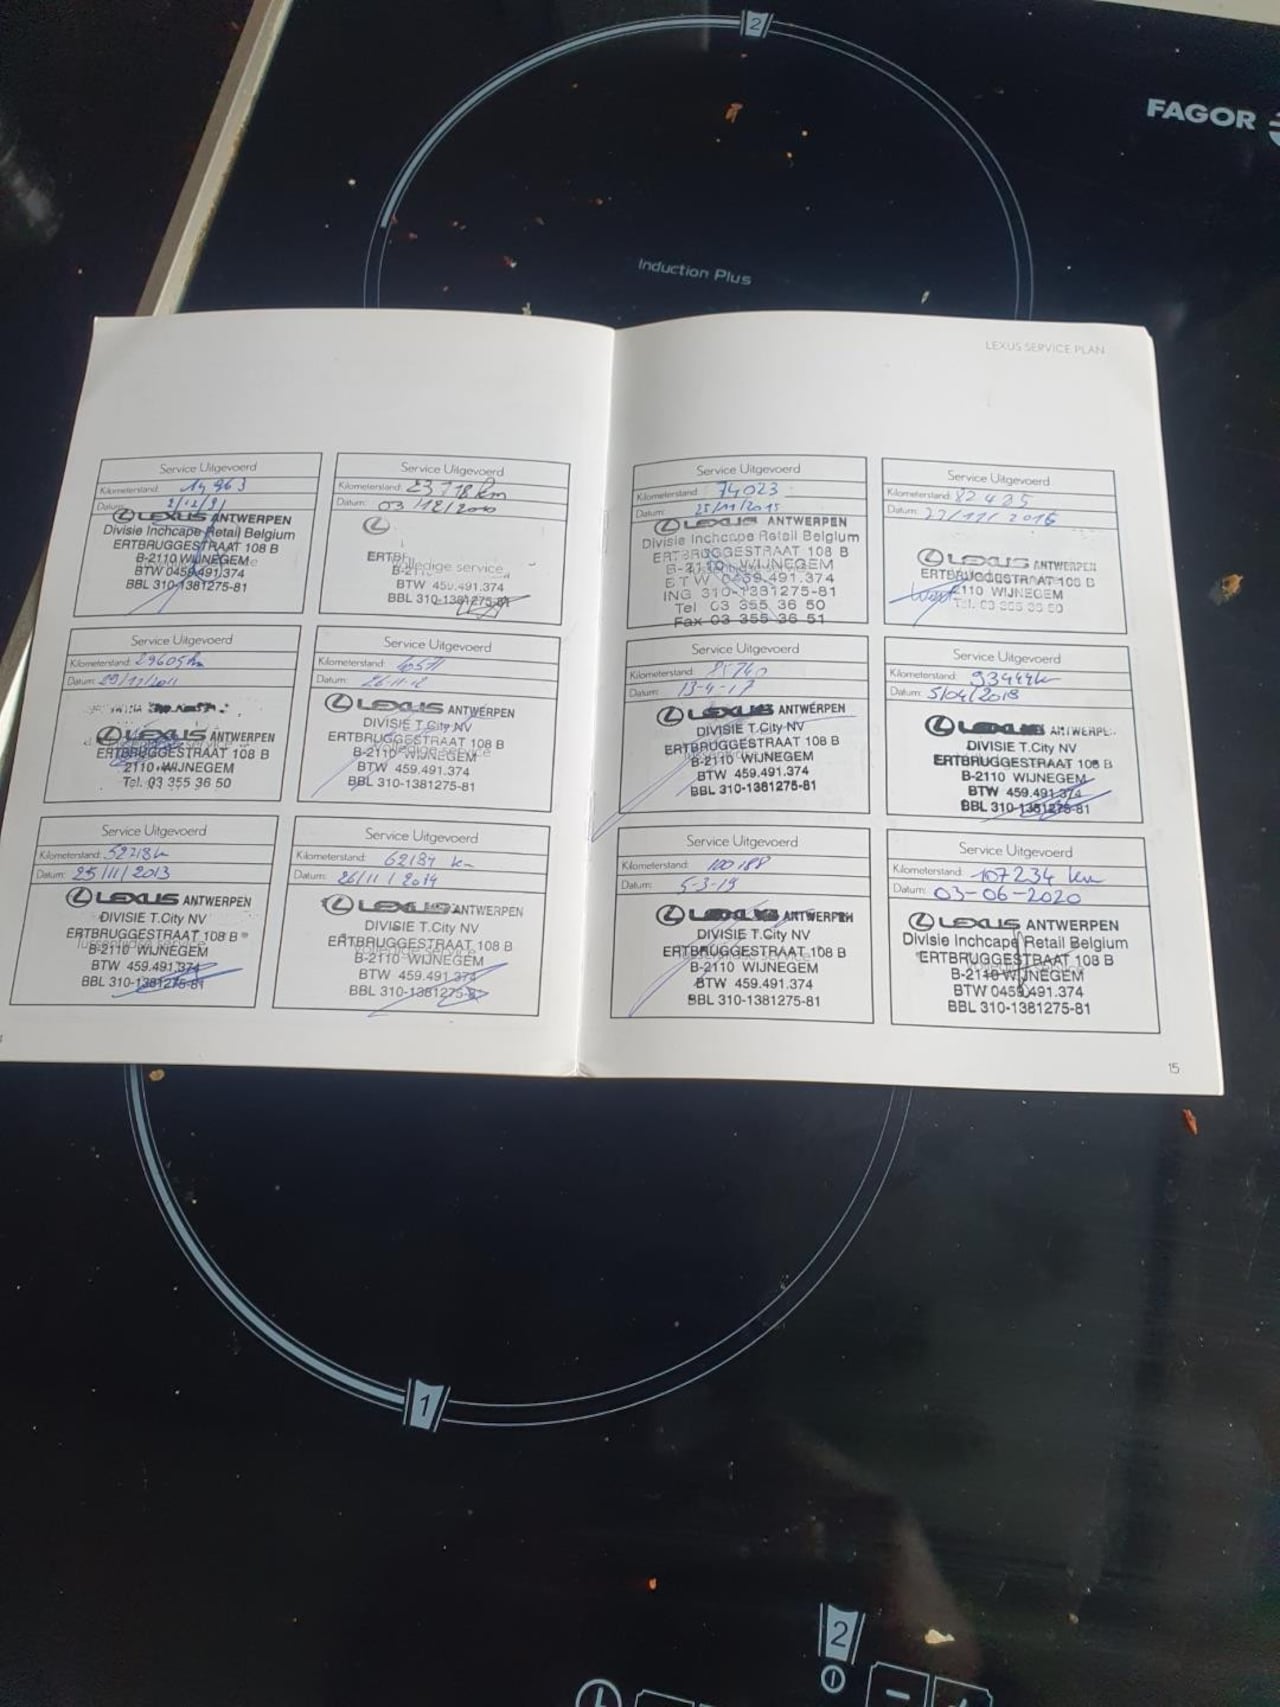 2
FAGOR
Induction Plus
LEXUS SERVICE PLAN
Service Uitgevoerd
Kilometerstand: 14963
Datum:
LEXUS ANTWERPEN
Divisie Inchcape Retail Belgium
ERTBRUGGESTRAAT 108 B
B-2110 WIJNEGEM
BTW 0459.491.374
BBL 310-1381275-81
Service Uitgevoerd
Kilometerstand: 23718 km
Datum: 03/12/2010
Volledige service
BTW 459.491.374
BBL 310-1381275-81
Service Uitgevoerd
Kilometerstand: 29605 km
Datum: 29/11/2011
LEXUS ANTWERPEN
ERTBRUGGESTRAAT 108 B
2110 WIJNEGEM
Tel. 03 355 36 50
Service Uitgevoerd
Kilometerstand:
Datum: 26.11.12
LEXUS ANTWERPEN
DIVISIE T.City NV
ERTBRUGGESTRAAT 108 B
B-2110 WIJNEGEM
BTW 459.491.374
BBL 310-1381275-81
Service Uitgevoerd
Kilometerstand: 52718 km
Datum: 25/11/2013
LEXUS ANTWERPEN
DIVISIE T.City NV
ERTBRUGGESTRAAT 108 B
Tussentijdse service
B-2110 WIJNEGEM
BTW 459.491.374
BBL 310-1381275-81
Service Uitgevoerd
Kilometerstand: 62184 km
Datum: 26/11/2014
LEXUS ANTWERPEN
DIVISIE T.City NV
ERTBRUGGESTRAAT 108 B
B-2110 WIJNEGEM
BTW 459.491.374
BBL 310-1381275-81
Service Uitgevoerd
Kilometerstand: 74023
Datum: 25/11/2015
LEXUS ANTWERPEN
Divisie Inchcape Retail Belgium
ERTBRUGGESTRAAT 108 B
B-2110 WIJNEGEM
BTW 0459.491.374
ING 310-1381275-81
Tel 03 355 36 50
Fax 03 355 36 51
Service Uitgevoerd
Kilometerstand: 82425
Datum: 27/11/2016
LEXUS ANTWERPEN
ERTBRUGGESTRAAT 108 B
2110 WIJNEGEM
Tel. 03 355 36 50
Service Uitgevoerd
Kilometerstand:
Datum: 13-4-17
LEXUS ANTWERPEN
DIVISIE T.City NV
ERTBRUGGESTRAAT 108 B
B-2110 WIJNEGEM
BTW 459.491.374
BBL 310-1381275-81
Service Uitgevoerd
Kilometerstand: 93444 km
Datum: 5/04/2018
LEXUS ANTWERPE.
DIVISIE T.City NV
ERTBRUGGESTRAAT 108 B
B-2110 WIJNEGEM
BTW 459.491.374
BBL 310-1381275-81
Service Uitgevoerd
Kilometerstand: 100188
Datum: 5-3-19
LEXUS ANTWERPEN
DIVISIE T.City NV
ERTBRUGGESTRAAT 108 B
B-2110 WIJNEGEM
BTW 459.491.374
BBL 310-1381275-81
Service Uitgevoerd
Kilometerstand: 107234 km
Datum: 03-06-2020
LEXUS ANTWERPEN
Divisie Inchcape Retail Belgium
ERTBRUGGESTRAAT 108 B
B-2110 WIJNEGEM
BTW 0459.491.374
BBL 310-1381275-81
15
1
2